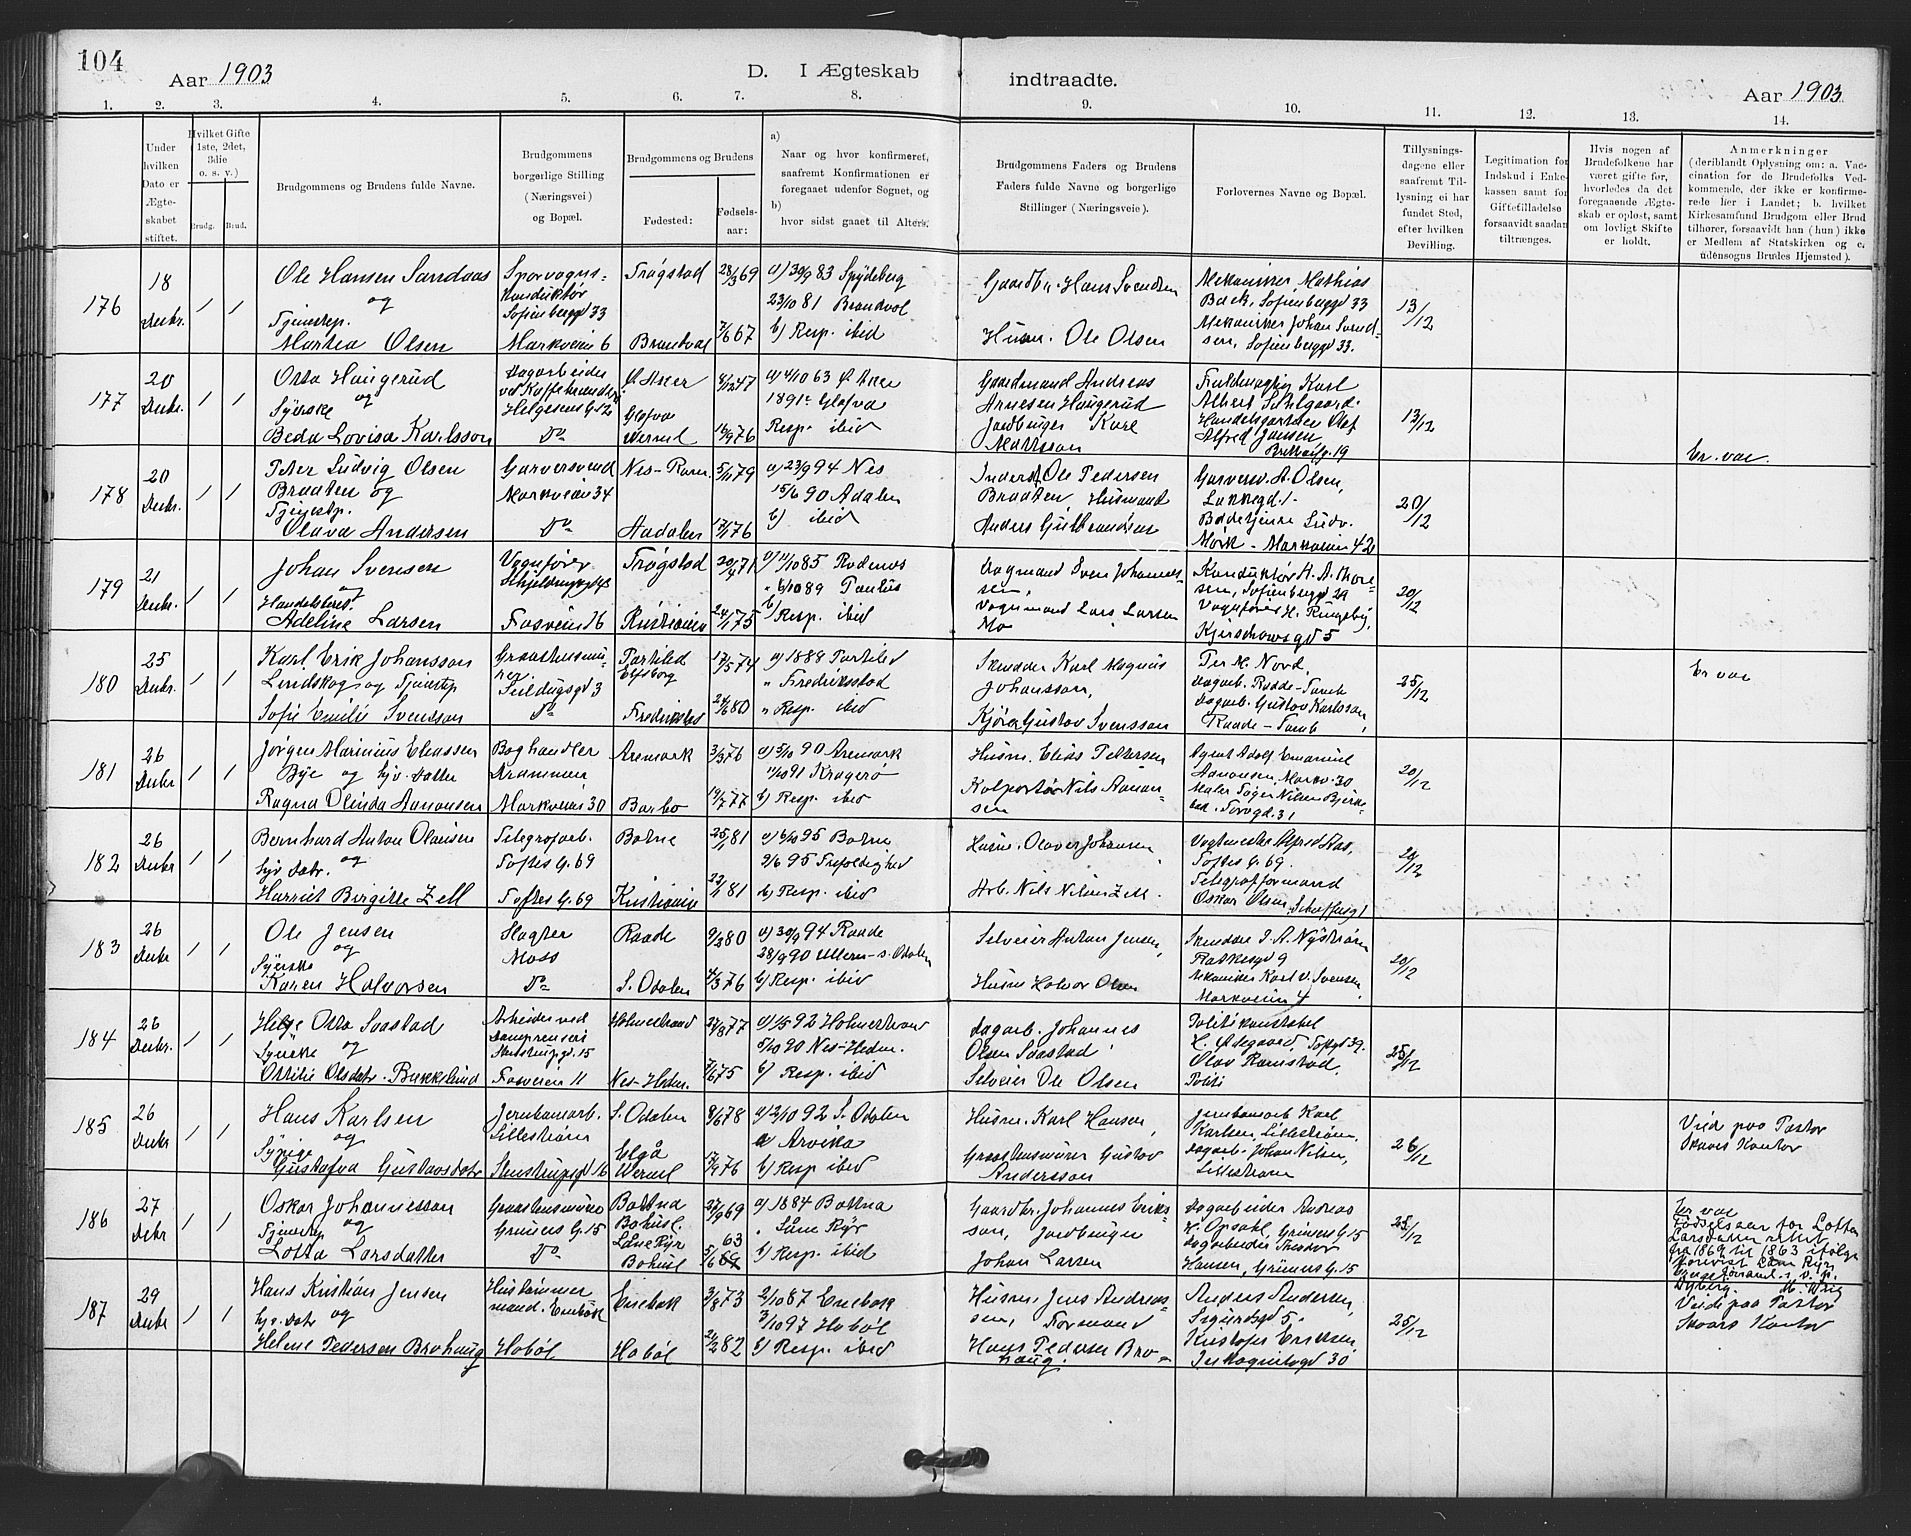 104
Aar 1903
D. I Ægteskab
indtraadte.
Aar 1903
1. 2. 3. 4. 5. 6. 7. 8. 9. 10. 11. 12. 13. 14.
Under hvilken Dato er Ægteskabet stiftet.
Hvilket Gifte (1ste, 2det, 3die o. s. v.)
Brudg. Brud.
Brudgommens og Brudens fulde Navne.
Brudgommens borgerlige Stilling (Næringsvei) og Bopæl.
Brudgommens og Brudens
Fødested:
Fødselsaar:
a) Naar og hvor konfirmeret, saafremt Konfirmationen er foregaaet udenfor Sognet, og
b) hvor sidst gaaet til Alters.
Brudgommens Faders og Brudens Faders fulde Navne og borgerlige Stillinger (Næringsveie).
Forlovernes Navne og Bopæl.
Tillysningsdagene eller saafremt Tillysning ei har fundet Sted, efter hvilken Bevilling.
Legitimation for Indskud i Enkekassen samt for Giftefilladelse forsaavidt saadan tiltrænges.
Hvis nogen af Brudefolkene har været gifte før, hvorledes da det foregaaende Ægteskab er opløst, samt om lovligt Skifte er holdt.
Anmerkninger (deriblandt Oplysning om: a. Vaccination for de Brudefolks Vedkommende, der ikke er konfirmerede her i Landet; b. hvilket Kirkesamfund Brudgom eller Brud tilhører, forsaavidt han (hun) ikke er Medlem af Statskirken og c. udensogns Brudes Hjemsted).
176
18 Decbr.
1 1
Ole Hansen Sandaas
og
Tjenestep.
Martea Olsen
Sporvogns-
konduktør
Sofienbergg 33
Markveien 6
Trøgstad
Brandval
28/3 69
7/6 67
a) 30/9 83 Spydeberg
23/10 81 Brandvol
b) Resp. ibid
Gaardbr. Hans Svendsen
Husm. Ole Olsen
Mekaniker Mathias
Back, Sofienbergg 33
Mekaniker Johan Svend-
sen, Sofienbergg 33.
13/12
177
20 Decbr.
1 1
Otto Haugerud
og
Syerske
Beda Lovisa Karlsson
Dagarbeider
Helgesens G. 12
Do
Ø. Aker
Glafva
Wermel
8/12 47
16/9 76
a) 4/10 63 Ø. Aker
1891 Glafva
Resp. ibid
Gaardmand Andreas
Arnesen Haugerud
Jordbruger Karl
Mattsson
Fuldmægtig Karl
Albert Schelgaard.
Handelsgartner Olaf
Alfred Jansen,
13/12
Er. vac.
178
20 Decbr.
1 1
Peter Ludvig Olsen
Braaten og
Tjenestp.
Olava Andersen
Garversvend
Markveien 34
Do
Nes-Rom.
Aadalen
5/11 79
17/1 76
a) 23/9 94 Nes
15/6 90 Adalen
b) ibid
Inderst Ole Pedersen
Braaten, Husmand
Anders Gulbrandsen
Garversv. A. Olsen,
Lakkegd. 1.
Bødtker Ludv.
Mørk - Markveien 42
20/12
179
21 Decbr.
1 1
Johan Svensen
og
Handelsbest.
Adeline Larsen
Vognfører
Fosveien 16
Trøgstad
Kristiania
20/4 71
24/1 75
a) 11/10 85 Rødenes
" 6/10 89 Paulus
b) Resp. ibid
Dagmand Sven Johannes-
sen,
Vognmand Lars Larsen
Mo
Konduktør H. A. Thore-
sen, Sofienbergg 29
Vognfører H. Ringeby,
Kjerschowsgd 5
20/12
180
25 Decbr.
1 1
Karl Erik Johansson
Lindskog og Tjenestep
Sofie Emilie Svensson
Graastensmu-
rer
Seildugsgd 3
Do
Partilled
Elfsborg
Fredrikstad
17/5 74
24/6 80
a) 1888 Partilled
" Fredrikstad
" Resp. ibid
Skrædder Karl Magnus
Johansson,
Kjører Gustav Svensson
Per M. Nord,
Dagarb. Raade-Tomb
Dagarb. Gustav Karlsson,
Raade-Tomb
25/12
Er vac
181
26 Decbr
1 1
Jørgen Marinius Eliassen
Bye og Hjv. Datter
Ragna Olinda Aanonsen
Boghandler
Drammen
Markveien 30
Aremark
Barbo
3/3 76
19/7 77
a) 5/10 90 Aremark
11/10 91 Kragerø
b) Resp. ibid
Husm. Elias Pettersen
Kolportør Nils Aanon-
sen
Agent Adolf Emanuel
Aanonsen, Markv. 30
Maler Inger Nilsen Bjerke-
bæk, Torvgd. 31
20/12
182
26 Decbr
1 1
Bernhard Anton Olausen
og
Hjv. Datr.
Harriet Birgitte Zell
Telegrafarb.
Toftes G. 69
Toftes G. 69
Botne
Kristiania
25/1 81
22/11 81
a) 6/10 95 Botne
9/6 95 Trefoldighed
b) Resp. ibid
Husm. Olaves Johansen,
Arb. Nils Nilsen Zell.
Toftes G. 69.
Telegrafformand
Oskar Olsen
20/12
183
26 Decbr
1 1
Ole Jensen
og
Syerske
Karen Halvorsen
Slagter
Moss
Do
Raade
S. Odalen
9/3 80
4/3 76
a) 30/9 94 Raade
28/9 90 Ullern-S. Odalen
b) Resp. ibid
Selveier Anton Jensen,
Husm Halvor Olsen
Skrædder I. A. Nystrøm
Flaskesgd 9
Mekaniker Karl V. Svensen,
Markveien 4
20/12
184
26 Decbr.
1 1
Helge Otto Svastad
og
Syerske
Ottilie Olsdatr. Bækkelund
Arbeider ved
Fosveien 11
Holmestrand
Nes-Hedm.
27/8 77
7/6 75
a) 1/5 92 Holmestrand
5/10 90 Nes-Hedm.
b) Resp. ibid
Dagarb. Johannes
Olsen Svastad
Selveier Ole Olsen
Politikonstabel
H. Ødegaard, Toftgd 39.
Olav Ramstad,
Politi
25/12
185
26 Decbr
1 1
Hans Karlsen
og
Syerige
Gustafva Gustavsdatr
Jernbanearb.
Lillestrøm
Stenstrupgd 16
S. Odalen
Elgå
Wermel
9/6 78
17/9 76
a) 2/10 92 S. Odalen
a Arvika
b) Resp ibid
Husm. Karl Hansen,
Graastensmurer Gustav
Andersson
Jernbanearb Karl
Karlsen, Lillestrøm.
Dagarb. Johan Nilsen,
Lillestrøm
26/12
Viede paa Pastor
Skaars Kontor
186
27 Decbr
1 1
Oskar Johannesson
og
Tjenestep
Lotta Larsdatter
Graastensmurer
Grüners G. 15
Do
Bottna
Bohusl.
Låne Ryr
Bohusl
27/9 69
63
5/6 69
a) 1884 Bottna
" Låne Ryr
b) Resp. ibid
Gaardbr. Johannes Eriks-
son, Jordbruger
Johan Larsen
Dagarbeider Andreas
H. Opsahl, Grüners G. 15
Dagarbeider Theodor
Hansen, Grüners G. 15
25/12
Er vac
Fødselsaar for Lotta
Larsdatter rettet
fra 1869 til 1863 ifølge
187
29 Decbr
1 1
Hans Kristian Jensen
og
Hjv. Datr
Helene Pedersen Brohaug
Hustømmer
mand. Enebak
Hobøl
Enebak
Hobøl
3/8 73
21/2 82
2/10 87 Enebak
3/10 97 Hobøl
b) Resp. ibid
Husm. Jens Andreas-
sen, Formand
Hans Pedersen Bro-
haug.
Anders Andersen,
Sigurdsgd 5.
Kristofer Eriksen,
Inkognitogd 30
25/12
Viede paa Pastor
Skaars Kontor